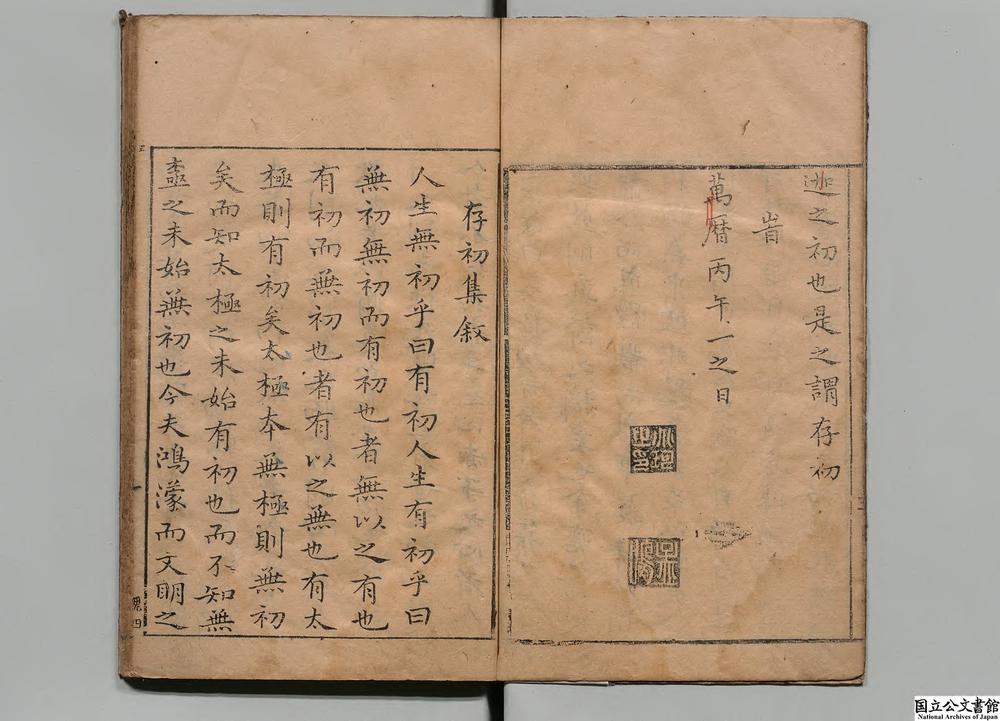 迯之初也是之謂存初
旹
萬曆丙午一之日
存初集叙
人生無初乎曰有初人生有初乎曰
無初無初而有初也者無以之有也
有初而無初也者有以之無也有太
極則有初矣太極本無極則無初
矣而知太極之未始有初也而不知無
極之未始無初也今夫鴻濛而文明之
四
国立公文書館
National Archives of Japan